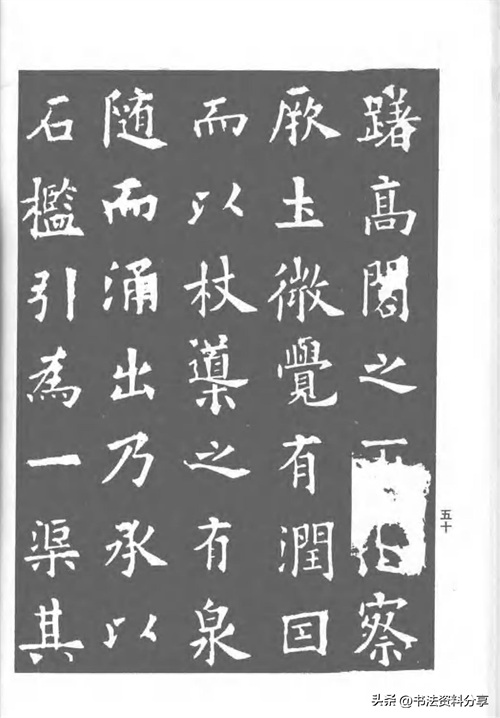 躇髙閣之察
厥土微覺有潤囙
而以杖導之有泉
随而涌出乃承以
石檻引為一渠其
五十
头条 @书法资料分享